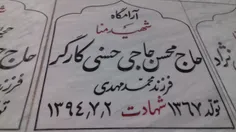 آرامگاه
شهید منا
حاج محسن حاجی حسنی کارگر
فرزند محمدمهدی
تولد ۱۳۶۷ شهادت ۱۳۹۴،۷،۲